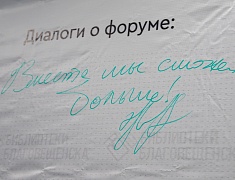 Диалоги о форуме:
Вместе мы сможем
больше!